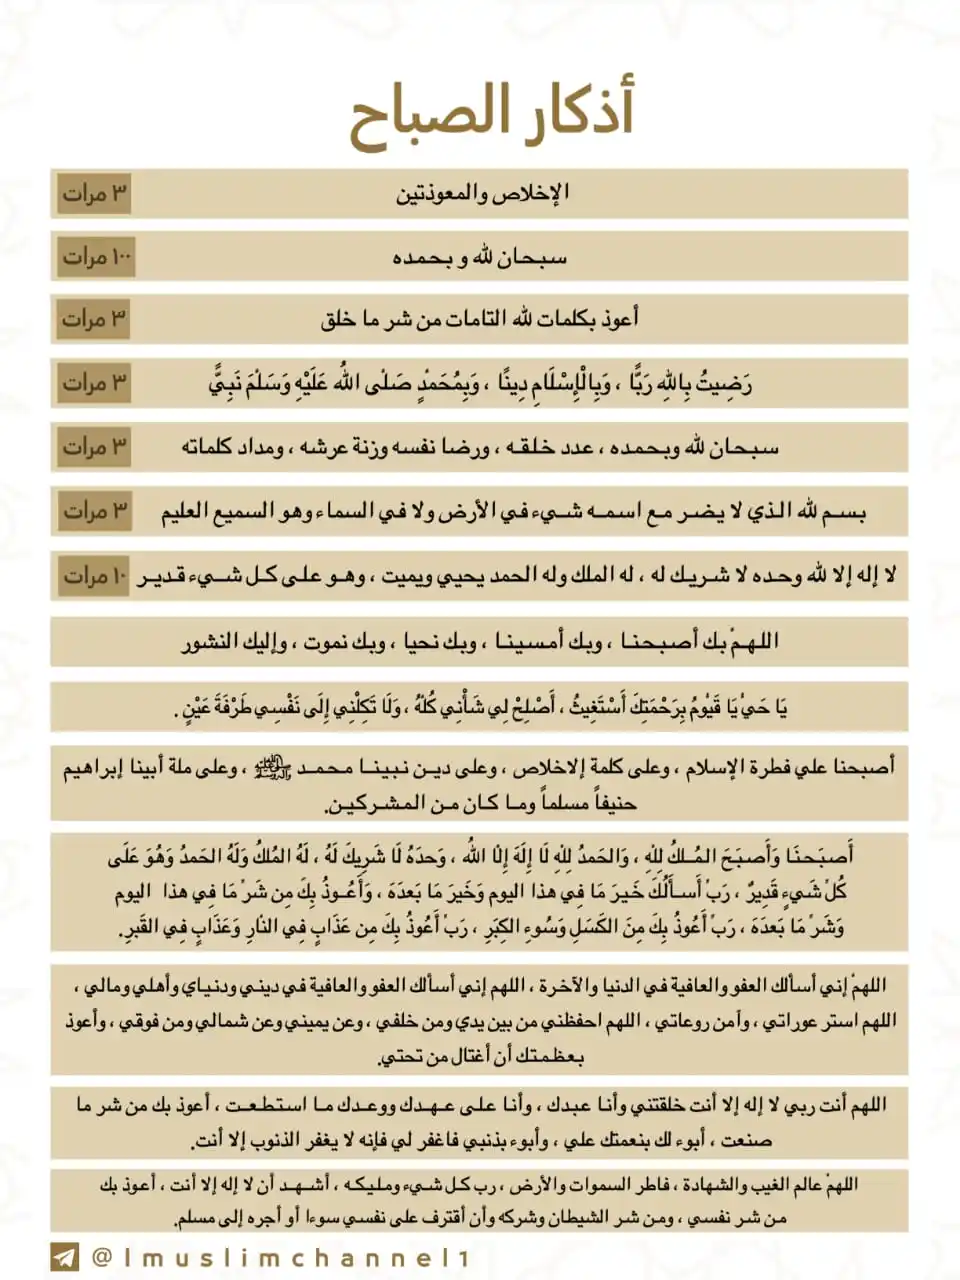 أذكار الصباح
الإخلاص والمعوذتين
٣ مرات
سبحان لله و بحمده
١٠٠ مرات
أعوذ بكلمات لله التامات من شر ما خلق
٣ مرات
رَضِيتُ بِاللهِ رَبًّا ، وَبِالْإِسْلَامِ دِينًا ، وَبِمُحَمْدٍ صَلْى اللهُ عَلَيْهِ وَسَلْمَ نَبِيًّ
٣ مرات
سبحان لله وبحمده ، عدد خلقه ، ورضا نفسه وزنة عرشه ، ومداد كلماته
٣ مرات
بسم لله الذي لا يضر مع اسمه شيء في الأرض ولا في السماء وهو السميع العليم
٣ مرات
لا إله إلا لله وحده لا شريك له ، له الملك وله الحمد يحيي ويميت ، وهو على كل شيء قدير
١٠ مرات
اللهمْ بك أصبحنا ، وبك أمسينا ، وبك نحيا ، وبك نموت ، وإليك النشور
يَا حَيْ يَا قَيْومُ بِرَحْمَتِكَ أَسْتَغِيثُ ، أَصْلِحْ لِي شَأْنِي كُلْهُ ، وَلَا تَكِلْنِي إِلَى نَفْسِي طَرْفَةَ عَيْنٍ .
أصبحنا علي فطرة الإسلام ، وعلى كلمة إلاخلاص ، وعلى دين نبينا محمد ﷺ ، وعلى ملة أبينا إبراهيم
حنيفاً مسلماً وما كان من المشركين.
أَصبَحنَا وَأَصبَحَ المُلكُ لِلهِ ، وَالحَمدُ لِلهِ لَا إِلَهَ إِلْا اللهُ ، وَحدَهُ لَا شَرِيكَ لَهُ ، لَهُ المُلكُ وَلَهُ الحَمدُ وَهُوَ عَلَى
كُلْ شَيءٍ قَدِيرٌ ، رَبْ أَسأَلُكَ خَيرَ مَا فِي هذا اليوم وَخَيرَ مَا بَعدَهَ ، وَأَعُوذُ بِكَ مِن شَرْ مَا فِي هذا اليوم
وَشَرْ مَا بَعدَهَ ، رَبْ أَعُوذُ بِكَ مِنَ الكَسَلِ وَسُوءِ الكِبَرِ ، رَبْ أَعُوذُ بِكَ مِن عَذَابٍ فِي النْارِ وَعَذَابٍ فِي القَبرِ.
اللهمْ إني أسألك العفو والعافية في الدنيا والآخرة ، اللهم إني أسألك العفو والعافية في ديني ودنياي وأهلي ومالي ،
اللهم استر عوراتي ، وآمن روعاتي ، اللهم احفظني من بين يدي ومن خلفي ، وعن يميني وعن شمالي ومن فوقي ، وأعوذ
بعظمتك أن أغتال من تحتي.
اللهم أنت ربي لا إله إلا أنت خلقتني وأنا عبدك ، وأنا على عهدك ووعدك ما استطعت ، أعوذ بك من شر ما
صنعت ، أبوء لك بنعمتك علي ، وأبوء بذنبي فاغفر لي فإنه لا يغفر الذنوب إلا أنت.
اللهمْ عالم الغيب والشهادة ، فاطر السموات والأرض ، رب كل شيء ومليكه ، أشهد أن لا إله إلا أنت ، أعوذ بك
من شر نفسي ، ومن شر الشيطان وشركه وأن أقترف على نفسي سوءا أو أجره إلى مسلم.
@lmuslimchannel1